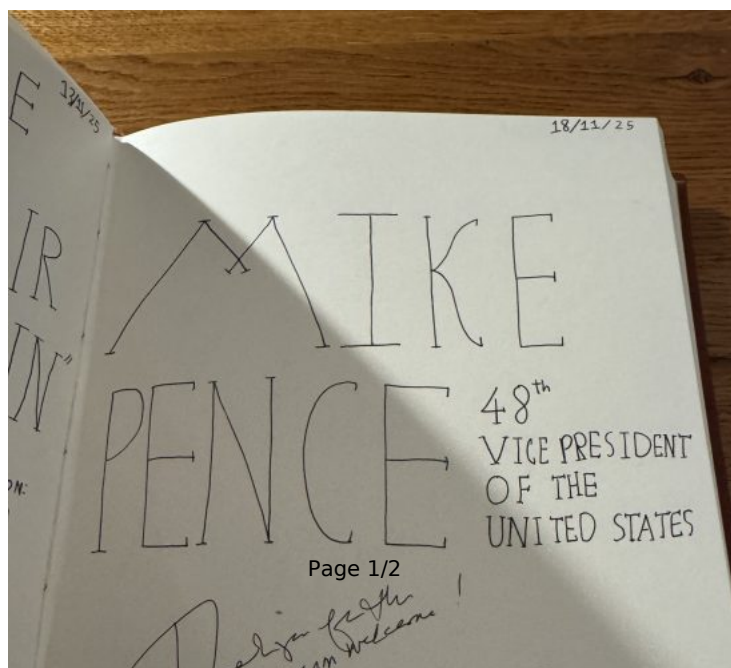 E
13/11/25
IR
IN"
ON:
18/11/25
MIKE
PENCE
48th
VICE PRESIDENT
OF THE
UNITED STATES
Page 1/2
for the
welcome!